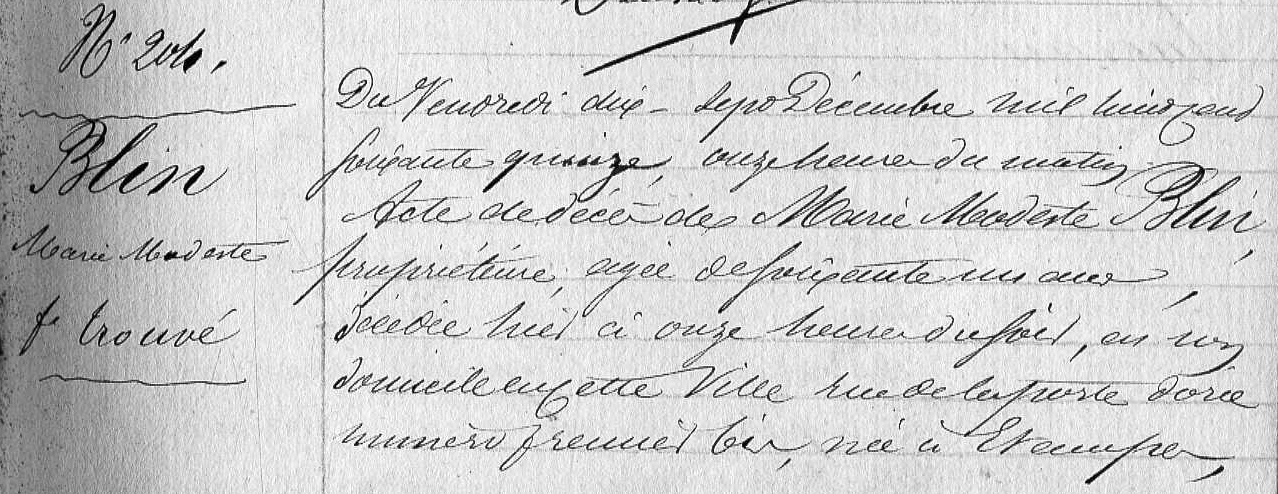 N° 204.
Blin
Marie Modeste
fe trouvé
Du Vendredi dix-sept Décembre mil huit cent
soixante quinze, onze heures du matin
Acte de décès de Marie Modeste Blin,
propriétaire, agée de soixante un ans,
décédée hier à onze heures du soir, en son
domicile en cette Ville rue de la porte dorée
numéro premier bis, née à Etampes,